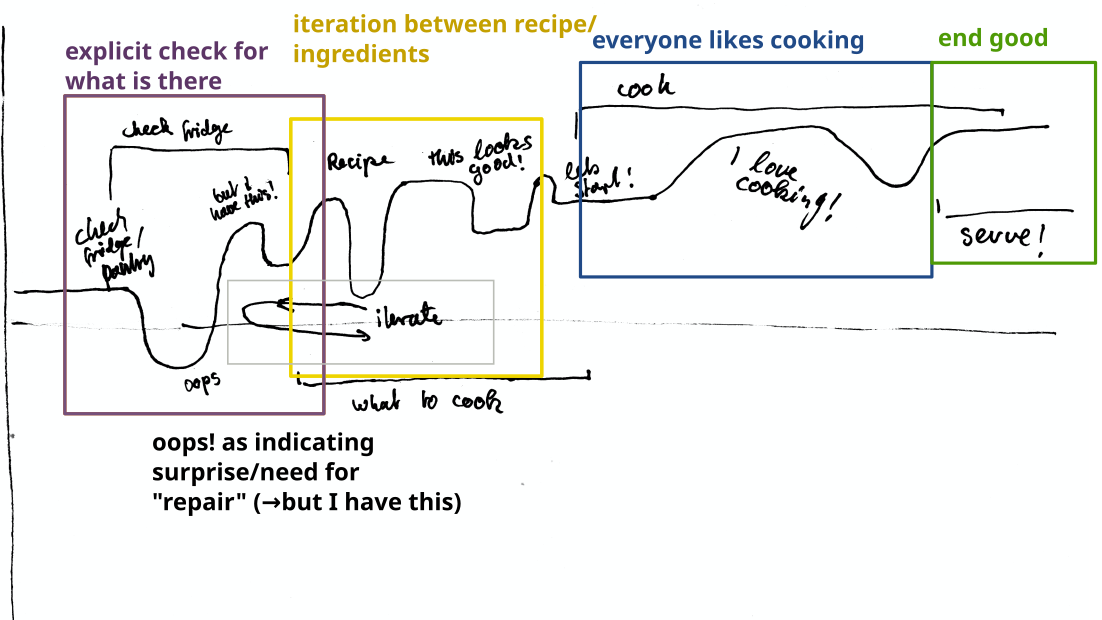 explicit check for
what is there
iteration between recipe/
ingredients
everyone likes cooking
end good
check fridge
check
fridge/
pantry
but I
have this!
oops
Recipe
this looks
good!
iterate
what to cook
lets
start!
cook
I love
cooking!
serve!
oops! as indicating
surprise/need for
"repair" (→but I have this)